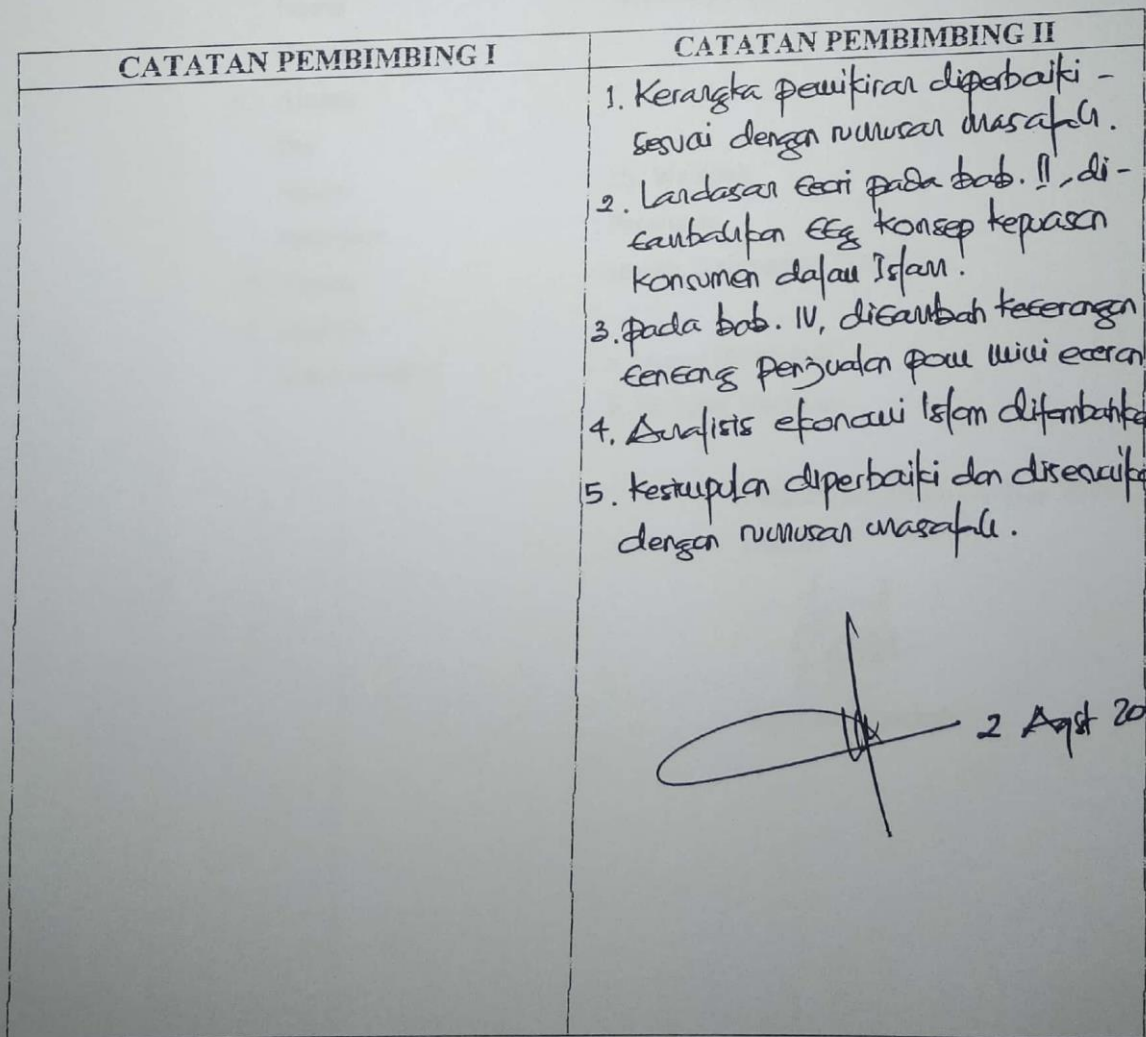 CATATAN PEMBIMBING I
CATATAN PEMBIMBING II
1. Kerangka pemikiran diperbaiki -
sesuai dengan rumusan masalah.
2. Landasan teori pada bab. II, di-
tambahkan ttg konsep kepuasan
konsumen dalam Islam.
3. pada bab. IV, ditambah keterangan
tentang penjualan pom mini eceran
4. Analisis ekonomi Islam ditambahka
5. Kesimpulan diperbaiki dan disesuaika
dengan rumusan masalah.
2 Agst 20